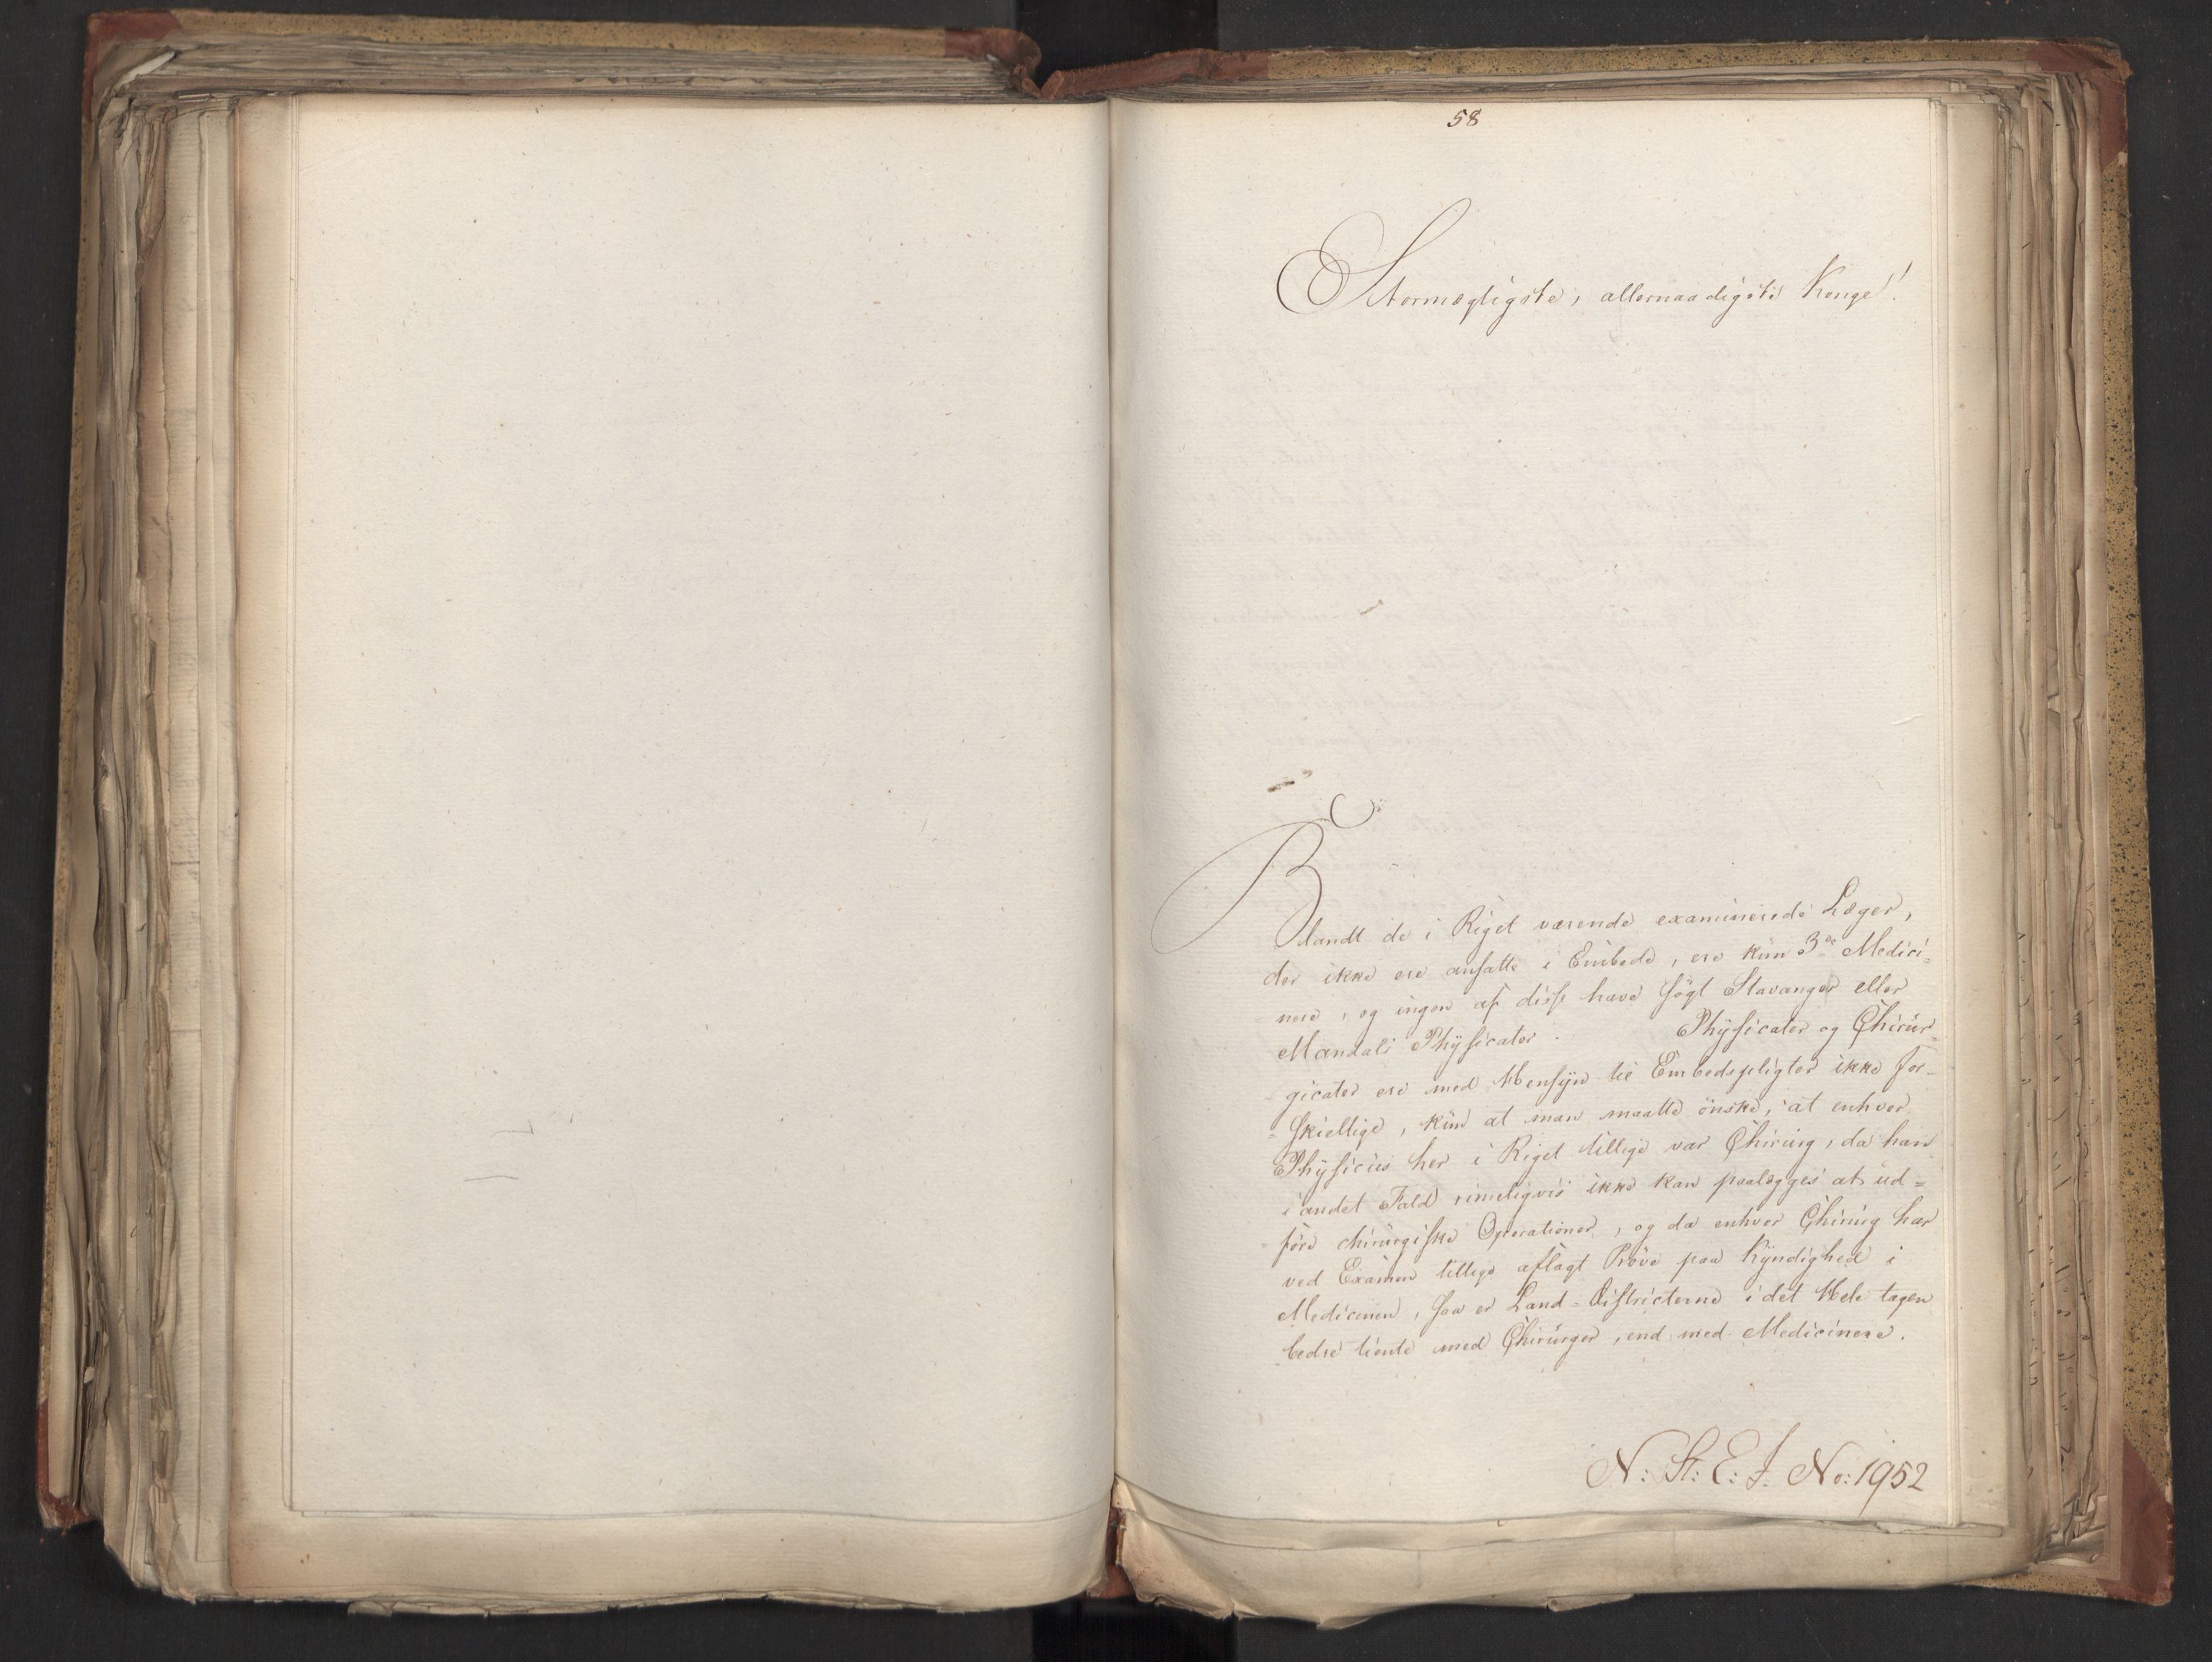 58
Stormægtigste, allernaadigste Konge!
Blandt de i Riget værende examinerede Læger,
der ikke ere ansatte i Embede, ere kun 3de Medici-
nere, og ingen af disse have søgt Stavanger eller
Mandals Physicater. Physicater og Chirur-
gicater ere med Hensyn til Embedspligter ikke for-
skiellige, kun at man maatte önske, at enhver
Physicus her i Riget tillige var Chirurg, da han
i andet Fald rimeligviis ikke kan paalægges at ud=
före chirurgiske Operationer, og da enhver Chirurg har
ved Examen tillige aflagt Pröve paa Kyndighed i
Medicinen, saa er Land-Districterne i det Hele tagen
bedre tiente med Chirurger, end med Medicinere.
N: St: E: J. No: 1952